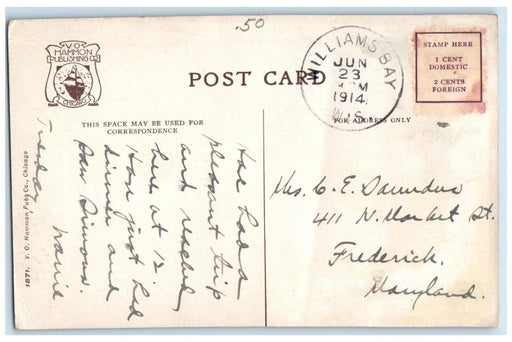 .50
V.O.
HAMMON
PUBLISHING CO.
CHICAGO
POST CARD
WILLIAMS BAY
JUN
23
M
1914
WIS.
STAMP HERE
1 CENT
DOMESTIC
2 CENTS
FOREIGN
THIS SPACE MAY BE USED FOR
CORRESPONDENCE
FOR ADDRESS ONLY
Have had a
pleasant trip
and reached
here at 12
Have just had
dinner and
saw Simons.
Tuesday
1871. V. O. Hammon Pub. Co., Chicago
Mrs. C. E. Saunders
411 N. Market St.
Frederick,
Maryland.